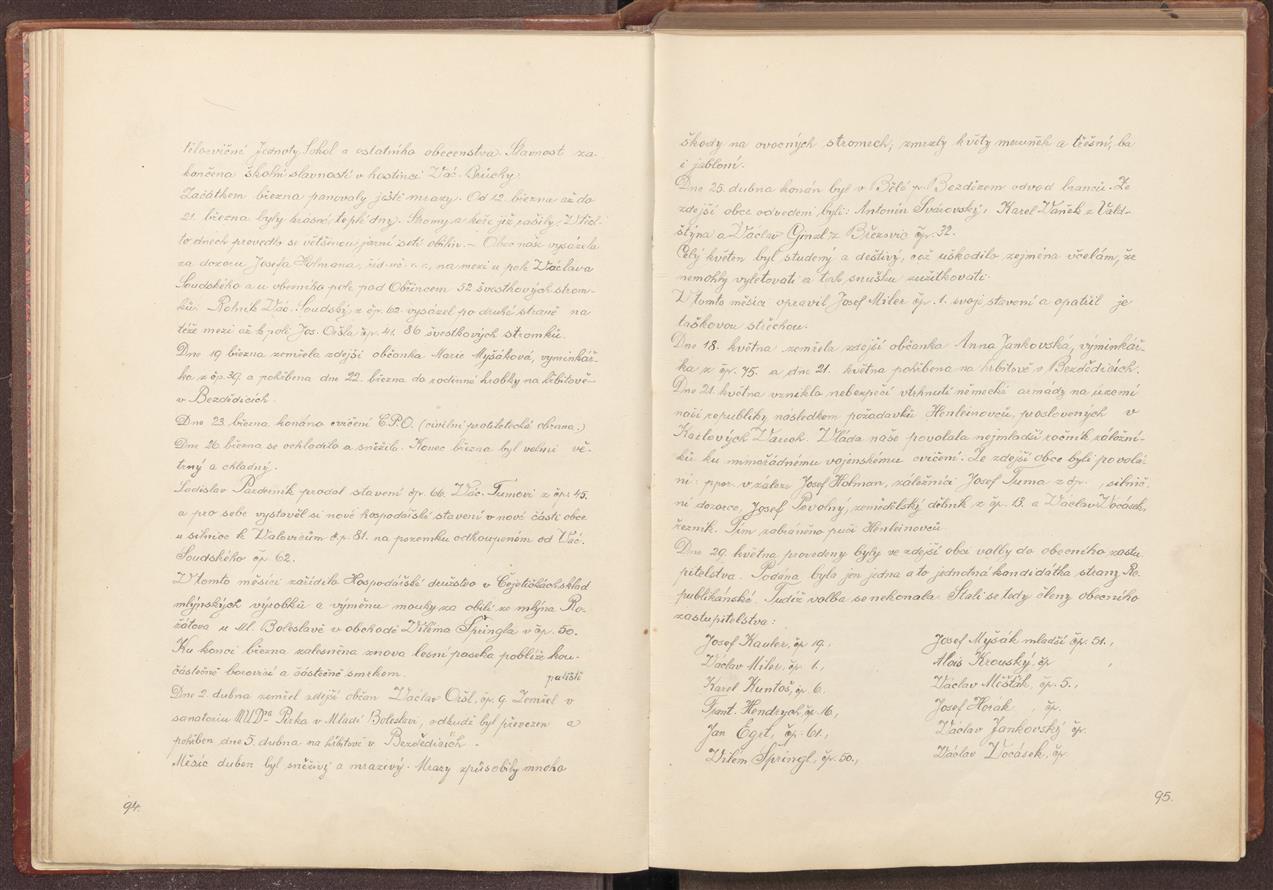 tělocvičné Jednoty Sokol a ostatního obecenstva. Slavnost za-
končena školní slavností v hostinci Vác. Brůchy.
Začátkem března panovaly ještě mrazy. Od 12. března až do
21. března byly krásné teplé dny. Stromy a keře již rašily. V těch-
to dnech provedlo se většinou jarní setí obilin. – Obec naše vysázela
za dozoru Josefa Holmana, říd. uč. v. v., na mezi u pole Václava
Soudského a u obecního pole pod Obřincem 52 švestkových strom-
ků. Rolník Vác. Soudský z čp. 62. vysázel po druhé straně na
téže mezi až k poli Jos. Oršla čp. 41. 86 švestkových stromků.
Dne 19 března zemřela zdejší občanka Marie Myšáková, vyminkář-
ka z čp. 39. a pohřbena dne 22. března do rodinné hrobky na hřbitově
v Bezdědicích.
Dne 23. března konáno cvičení C.P.O. (civilní protiletecká obrana.)
Dne 26. března se ochladilo a sněžilo. Konec března byl velmi vě-
trný a chladný.
Ladislav Pazderník prodal stavení čp. 66. Vác. Tumovi z čp. 45.
a pro sebe vystavěl si nové hospodářské stavení v nové části obce
u silnice k Valovicům čp. 81. na pozemku odkoupeném od Vác.
Soudského čp. 62.
V tomto měsíci zařídilo Hospodářské družstvo v Čejetičkách sklad
mlýnských výrobků a výměnu mouky za obilí ze mlýna Ro-
žátova u Ml. Boleslavě v obchodě Viléma Špringla v čp. 50.
Ku konci března zalesněna znova lesní paseka poblíže kou-
částečně borovicí a částečně smrkem. paliště
Dne 2. dubna zemřel zdejší občan Václav Oršl, čp. 9. Zemřel v
sanatoriu MUDra Pirka v Mladé Boleslavi, odkudž byl převezen a
pohřben dne 5. dubna na hřbitově v Bezdědicích.
Měsíc duben byl sněživý a mrazivý. Mrazy způsobily mnoho
94.
škody na ovocných stromech; zmrzly květy meruněk a třešní, ba
i jabloní.
Dne 25. dubna konán byl v Bělé p. Bezdězem odvod branců. Ze
zdejší obce odvedeni byli: Antonín Svárovský, Karel Vaněk z Vald-
štýna a Václav Ginzl z Březovic čp. 32.
Celý květen byl studený a deštivý, což uškodilo zejména včelám, že
nemohly vyletovati a tak snůšku zužitkovati.
V tomto měsíci opravil Josef Miler čp. 1. svoje stavení a opatřil je
taškovou střechou.
Dne 18. května zemřela zdejší občanka Anna Jankovská, výminkář-
ka z čp. 75. a dne 21. května pohřbena na hřbitově v Bezdědicích.
Dne 21. května vzniklo nebezpečí vtrhnutí německé armády na území
naší republiky následkem požadavků Henleinovců, proslovených v
Karlových Varech. Vláda naše povolala nejmladší ročník záložní-
ků ku mimořádnému vojenskému cvičení. Ze zdejší obce byli povolá-
ni: ppor. v záloze Josef Holman, záložníci Josef Tuma z čp. , silnič-
ní dozorce, Josef Povolný, zemědělský dělník z čp. 13. a Václav Vocásek,
řezník. Tím zabráněno puči Henleinovců.
Dne 29. května provedeny byly ve zdejší obci volby do obecního zastu-
pitelstva. Podána byla jen jedna a to jednotná kandidátka strany Re-
publikánské. Tudíž volba se nekonala. Stali se tedy členy obecního
zastupitelstva:
Josef Kauler, čp 19.,
Václav Miler, čp. 1.,
Karel Kuntoš, čp. 6.
Frant. Hendrych, čp. 16.,
Jan Egrt, čp. 61.,
Vilém Špringl, čp. 50.,
Josef Myšák mladší čp. 51.,
Alois Krouský, čp ,
Václav Měšťák, čp. 5.,
Josef Horák , čp.
Václav Jankovský čp.
Václav Vocásek, čp
95.